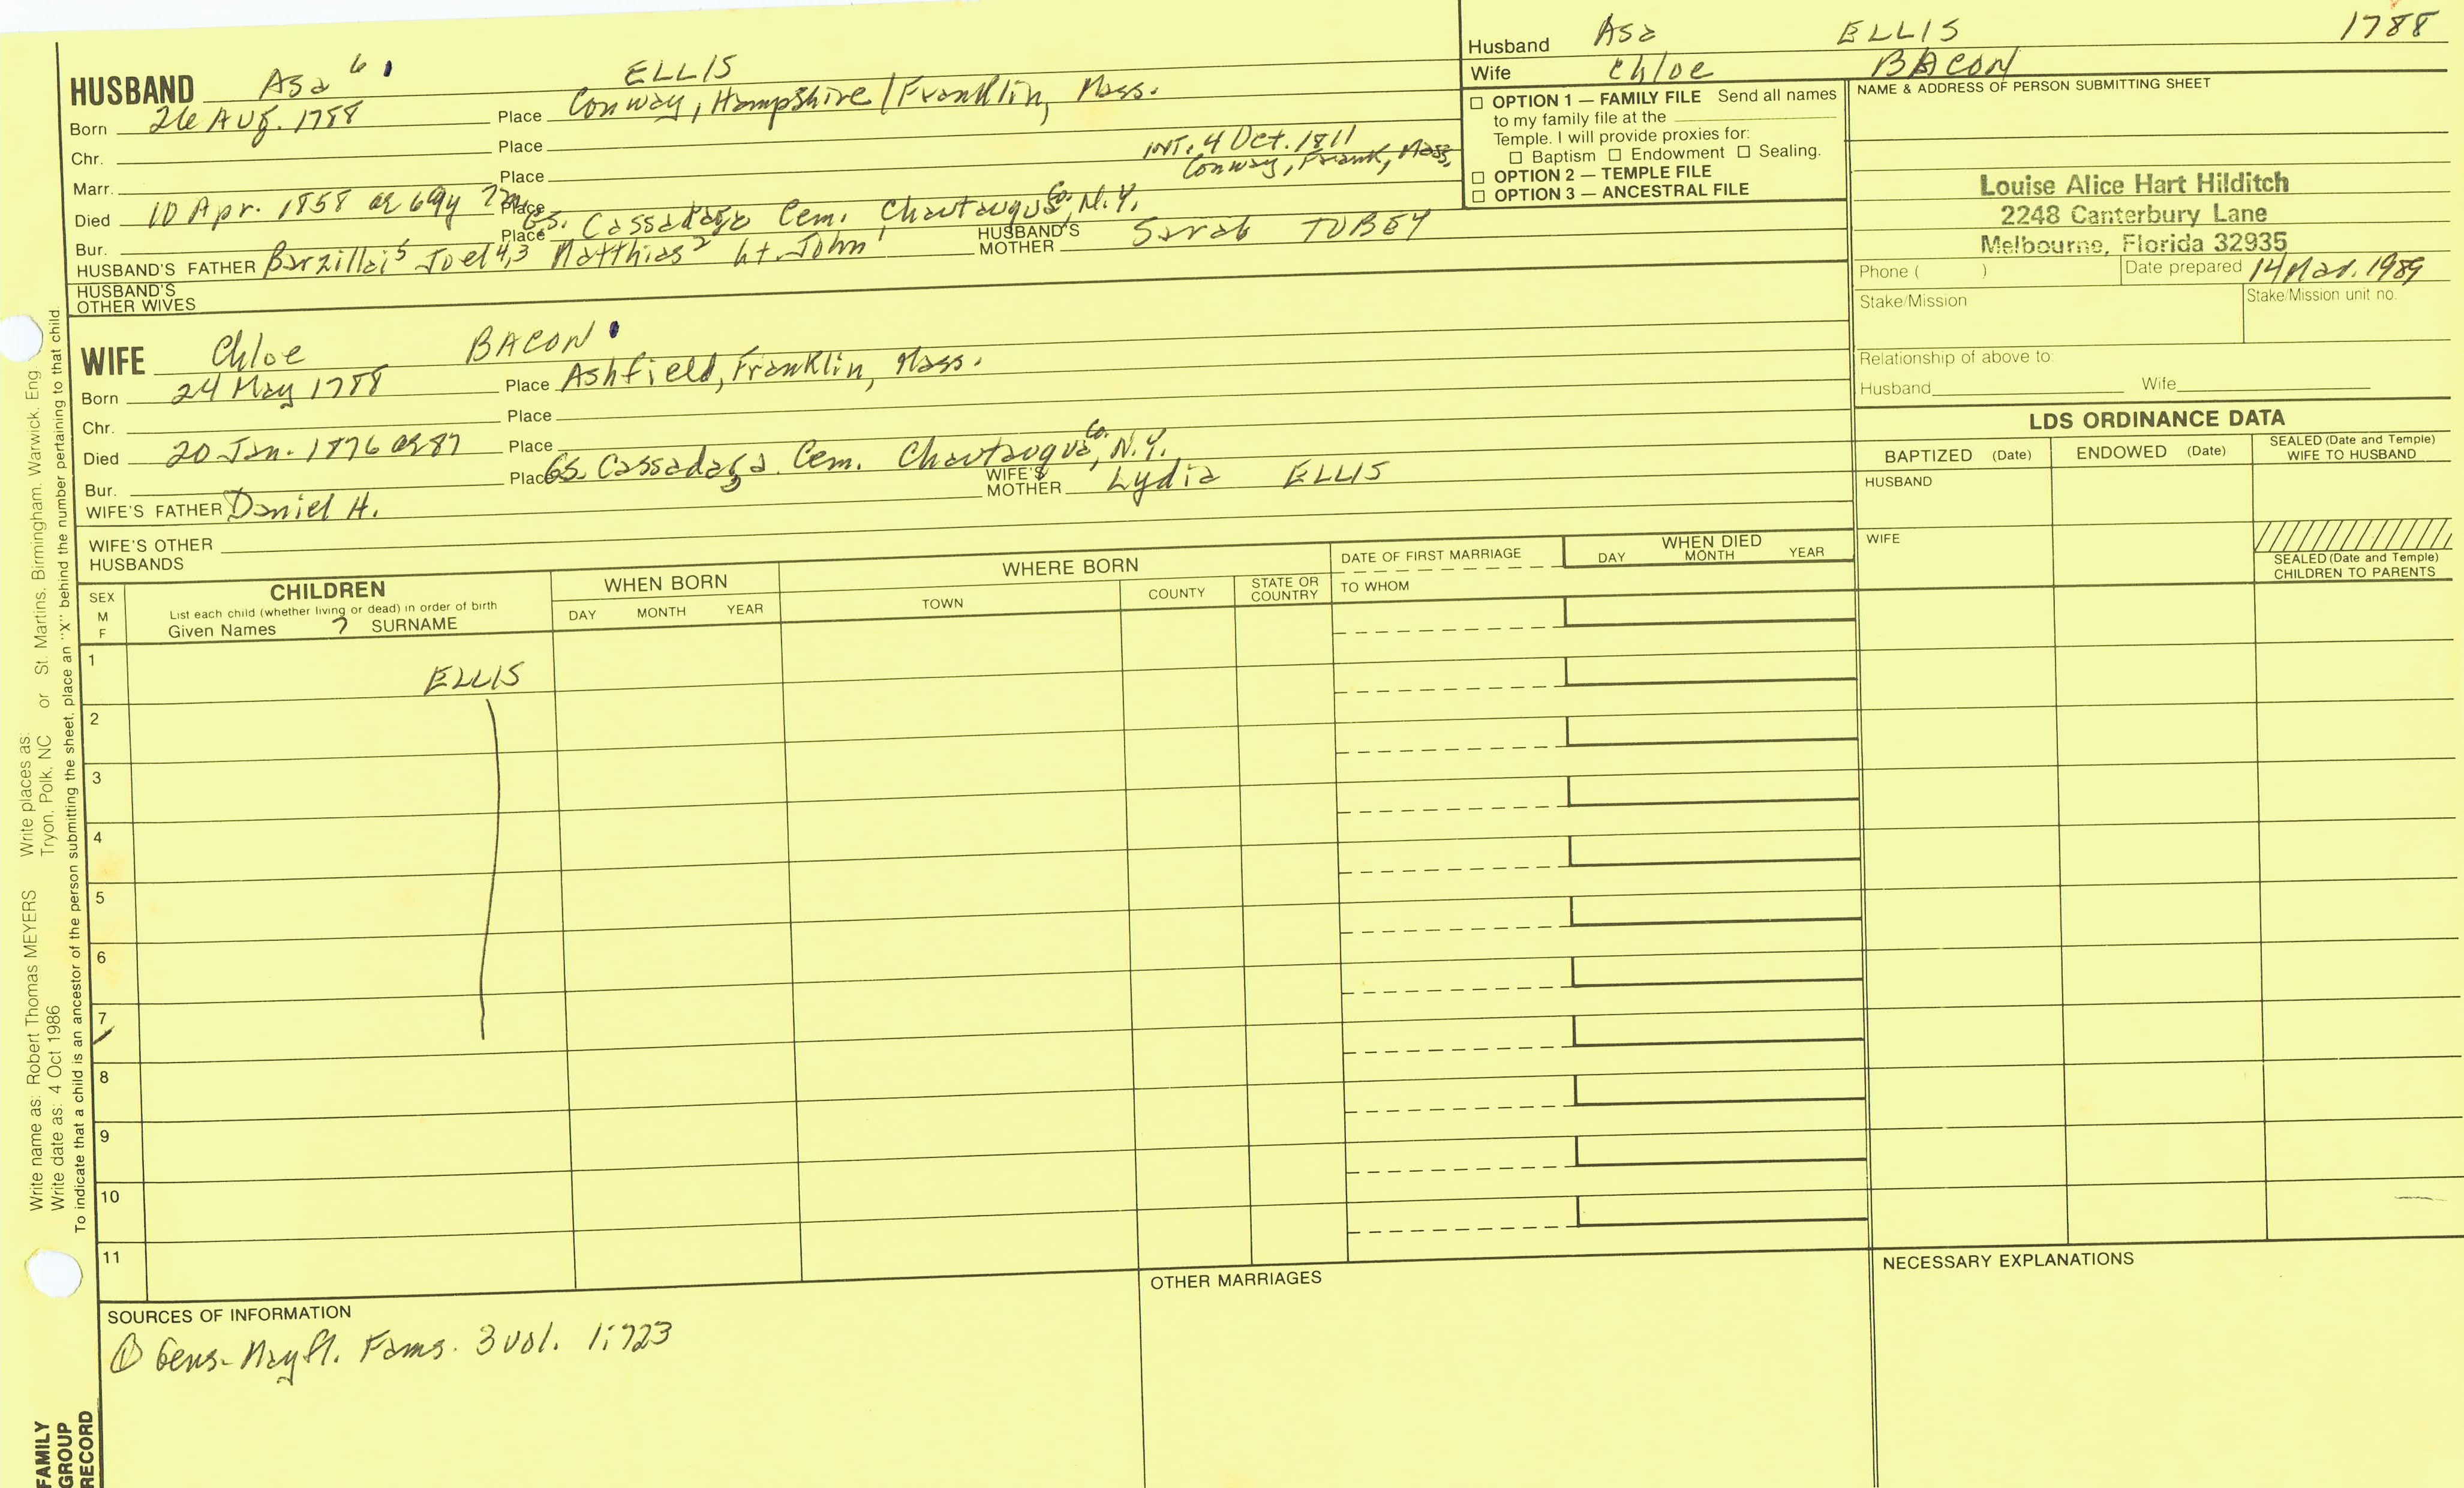 HUSBAND Asa 6 ELLIS
Born 26 Aug. 1788 Place Conway, Hampshire/Franklin, Mass.
Chr. Place
INT. 4 Oct. 1811
Marr. Place Conway, Frank, Mass.
Died 10 Apr. 1858 ae 69y 7m Place
Bur. Place GS. Cassadaga Cem. Chautauqua Co. N.Y.
HUSBAND'S FATHER Barzillai 5 Joel 4,3 Matthias 2 Lt. John 1 HUSBAND'S MOTHER Sarah TOBEY
HUSBAND'S OTHER WIVES
WIFE Chloe BACON
Born 24 May 1788 Place Ashfield, Franklin, Mass.
Chr. Place
Died 20 Jan. 1876 ae 87 Place
Bur. Place GS. Cassadaga Cem. Chautauqua Co. N.Y.
WIFE'S FATHER Daniel H. WIFE'S MOTHER Lydia ELLIS
WIFE'S OTHER HUSBANDS
Husband Asa ELLIS 1788
Wife Chloe BACON
☐ OPTION 1 — FAMILY FILE Send all names
to my family file at the
Temple. I will provide proxies for:
☐ Baptism ☐ Endowment ☐ Sealing.
☐ OPTION 2 — TEMPLE FILE
☐ OPTION 3 — ANCESTRAL FILE
NAME & ADDRESS OF PERSON SUBMITTING SHEET
Louise Alice Hart Hilditch
2248 Canterbury Lane
Melbourne, Florida 32935
Phone ( ) Date prepared 14 Mar. 1989
Stake/Mission Stake/Mission unit no.
Relationship of above to:
Husband Wife
LDS ORDINANCE DATA
BAPTIZED (Date) ENDOWED (Date) SEALED (Date and Temple) WIFE TO HUSBAND
HUSBAND
WIFE
SEALED (Date and Temple)
CHILDREN TO PARENTS
SEX M F
CHILDREN
List each child (whether living or dead) in order of birth
Given Names ? SURNAME
WHEN BORN
DAY MONTH YEAR
WHERE BORN
TOWN COUNTY STATE OR COUNTRY
DATE OF FIRST MARRIAGE
TO WHOM
WHEN DIED
DAY MONTH YEAR
1 ELLIS
2
3
4
5
6
7
8
9
10
11
SOURCES OF INFORMATION
① Gens. Mayfl. Fams. 3 vol. 1:723
OTHER MARRIAGES
NECESSARY EXPLANATIONS
Write name as: Robert Thomas MEYERS Write places as: Tryon, Polk, NC or St. Martins, Birmingham, Warwick, Eng.
Write date as: 4 Oct 1986
To indicate that a child is an ancestor of the person submitting the sheet, place an "X" behind the number pertaining to that child
FAMILY
GROUP
RECORD